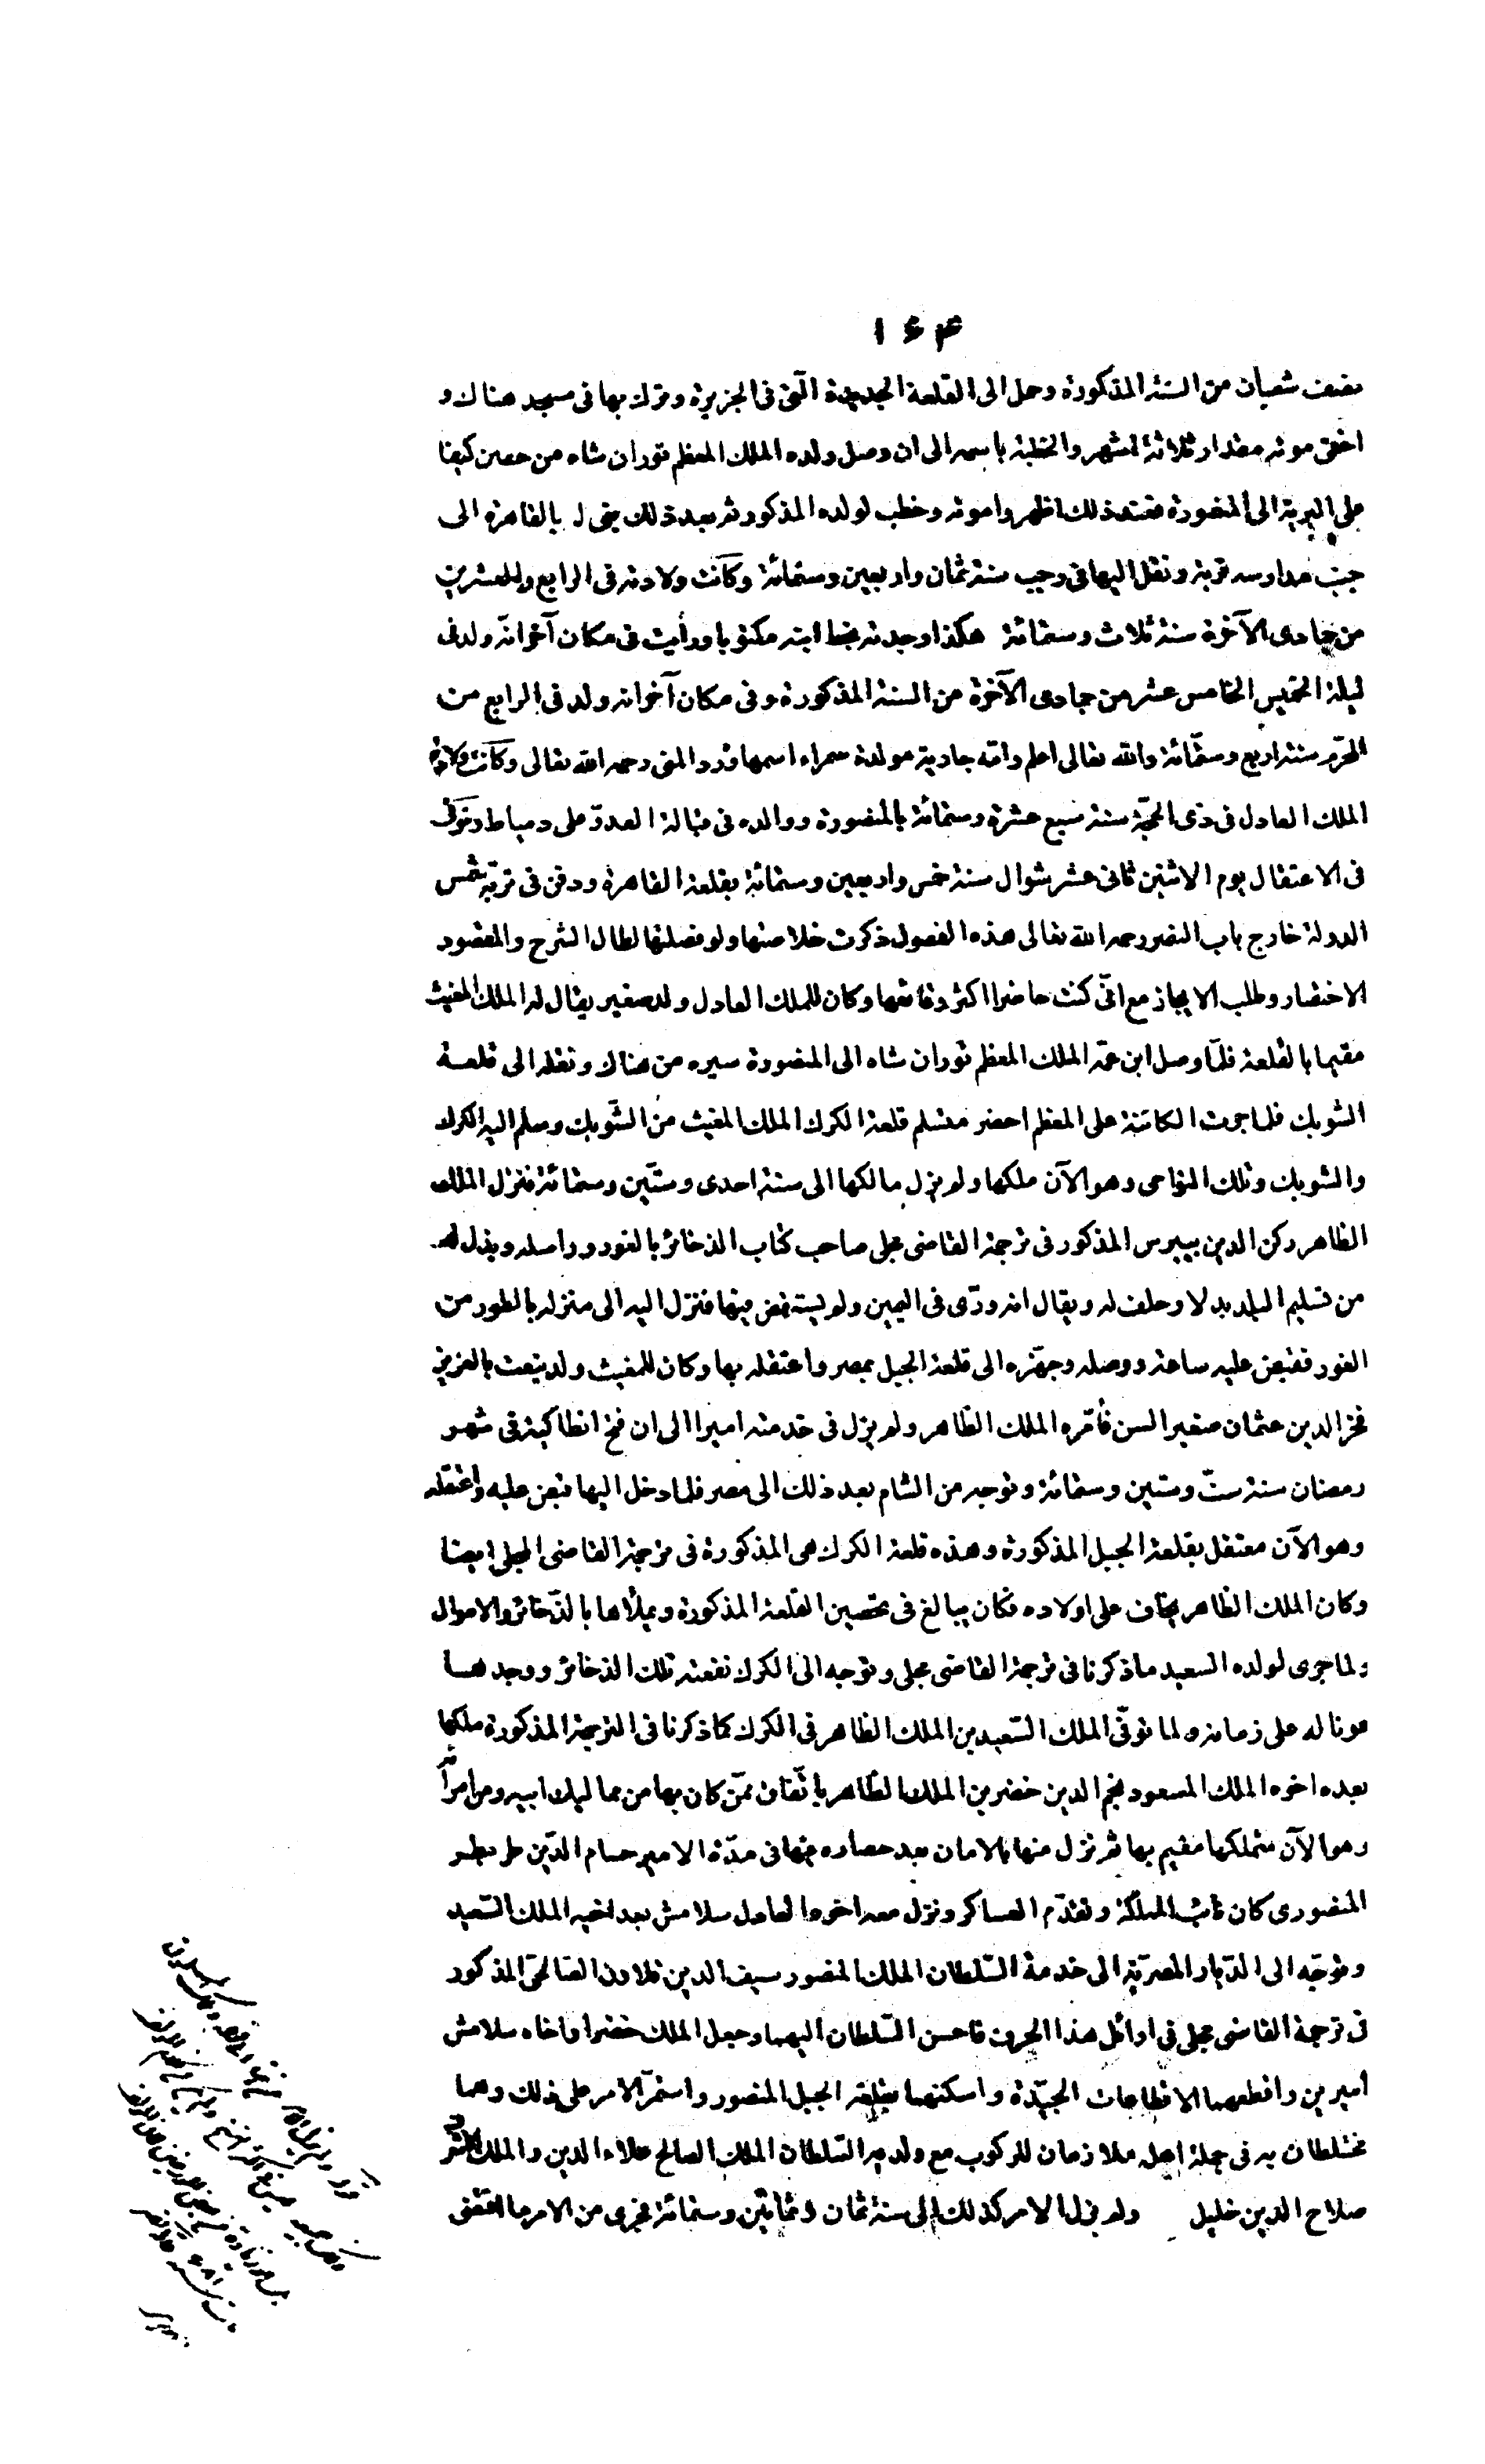 ١٤٣
نصف شعبان من السنة المذكورة وحمل الى القلعة الجديدة التى فى الجزيرة وترك بها فى مسجد هناك و
اخفى موته مقدار ثلاثة اشهر والخطبة باسمه الى ان وصل ولده الملك المعظم توران شاه من حصن كيفا
على البرية الى المنصورة فعند ذلك اظهروا موته وخطب لولده المذكور ثم بعد ذلك بنى له بالقاهرة الى
جنب مدارسه تربة ونقل اليها فى رجب سنة ثمان واربعين وستمائة وكانت ولادته فى الرابع والعشرين
من جمادى الآخرة سنة ثلاث وستمائة هكذا وجدته بخط ابيه مكتوبا ورأيت فى مكان آخر انّه ولد فى
ليلة الخميس الخامس عشر من جمادى الآخرة من السنة المذكورة وفى مكان آخر انه ولد فى الرابع من
المحرّم سنة اربع وستّمائة والله تعالى اعلم وامّه جارية مولدة سمراء اسمها ورد المنى رحمه الله تعالى وكانت ولادة
الملك العادل فى ذى الحجّة سنة سبع عشرة وستمائة بالمنصورة ووالده فى قبالة العدوّ على دمياط وتوفّى
فى الاعتقال يوم الاثنين ثانى عشر شوال سنة خمس واربعين وستمائة بقلعة القاهرة ودفن فى تربة شمس
الدولة خارج باب النصر رحمه الله تعالى هذه الفصول ذكرت خلاصتها ولو فصلتها لطال الشرح والمقصود
الاختصار وطلب الايجاز مع انّى كنت حاضرا اكثر وقائعها وكان للملك العادل ولد صغير يقال له الملك المغيث
مقيما بالقلعة فلمّا وصل ابن عمّه الملك المعظم توران شاه الى المنصورة سيره من هناك ونقله الى قلعة
الشوبك فلما جرت الكائنة على المعظم احضر متسلم قلعة الكرك الملك المغيث من الشّوبك وسلم اليه الكرك
والشوبك وتلك النواحى وهو الآن ملكها ولم يزل مالكها الى سنة احدى وستّين وستمائة فنزل الملك
الظاهر ركن الدين بيبرس المذكور فى ترجمة القاضى مجلى صاحب كتاب الذخائر بالغور وراسله وبذل له
من تسليم البلد بدلا وحلف له ويقال انه ورّى فى اليمين ولم يستقص فيها فنزل اليه الى منزله بالطور من
الغور فقبض عليه ساعة ووصله وجهّزه الى قلعة الجبل بمصر واعتقله بها وكان للمغيث ولد ينعت بالعزيز
فخر الدين عثمان صغير السن فأمّره الملك الظاهر ولم يزل فى خدمته اميرا الى ان فتح انطاكية فى شهر
رمضان سنة ستّ وستين وستمائة وتوجه من الشام بعد ذلك الى مصر فلما دخل اليها قبض عليه واعتقله
وهو الآن معتقل بقلعة الجبل المذكورة وهذه قلعة الكرك هى المذكورة فى ترجمة القاضى المجلى ايضا
وكان الملك الظاهر يخاف على اولاده فكان يبالغ فى تحصين القلعة المذكورة ويملأها بالذّخائر والاموال
ولما جرى لولده السعيد ما ذكرنا فى ترجمة القاضى مجلى وتوجه الى الكرك نفعته تلك الذخائر ووجدها
عونا له على زمانه ولما توفّى الملك السّعيد بن الملك الظاهر فى الكرك كما ذكرنا فى الترجمة المذكورة ملكها
بعده اخوه الملك المسعود نجم الدين خضر بن الملك الظّاهر باتّفاق ممّن كان بها من مماليك ابيه ومن امرائه
وهو الآن متملكها مقيم بها ثم نزل منها بالامان بعد حصاره فيها فى مدّة الامير حسام الدّين طرنطر
المنصورى كان نائب المملكة وتقدّم العساكر ونزل معه اخوه العادل سلامش بعد اخيه الملك السّعيد
وتوجّه الى الدّيار المصريّة الى خدمة السّلطان الملك المنصور سيف الدين قلاون الصالحىّ المذكور
فى ترجمة القاضى مجلى فى اوائل هذا الحرف فاحسن السّلطان اليهما وجعل الملك خضرا واخاه سلامش
اميرين واقطعهما الاقطاعات الجيّدة واسكنهما بقلعة الجبل المنصور واستمرّ الامر على ذلك وهما
مختلطان به فى جملة اهله ملازمان للركوب مع ولديه السّلطان الملك الصالح علاء الدين والملك الاشرف
صلاح الدين خليل ولم يزل الامر كذلك الى سنة ثمان وثمانين وستمائة فجرى من الامر ما اقتضى